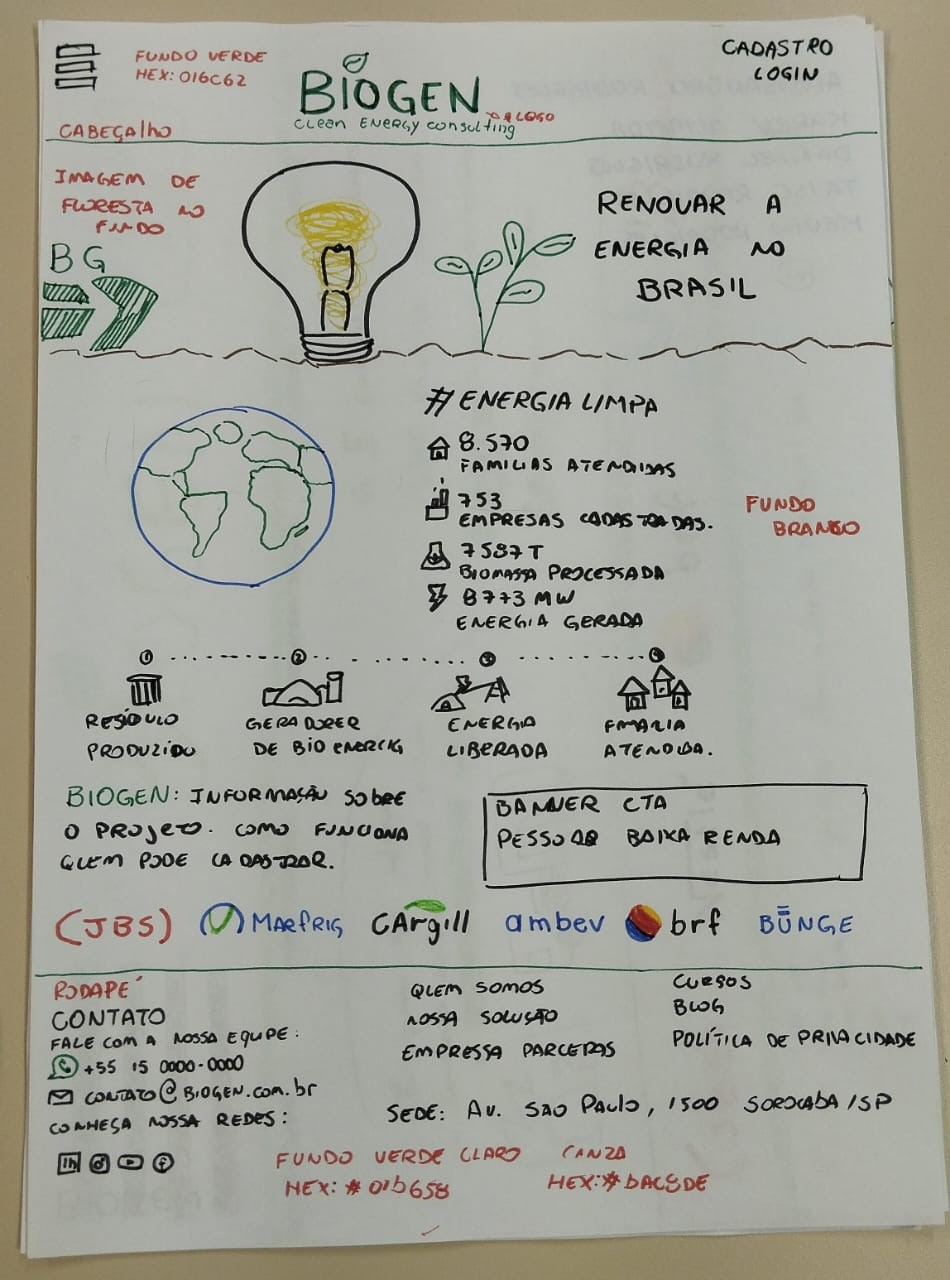 FUNDO VERDE
HEX: 016C62
CADASTRO
LOGIN
BIOGEN
CLEAN ENERGY consulting
LOGO
CABEÇAlHO
IMAGEM DE
FLORESTA AO
FUNDO
BG
RENOVAR A
ENERGIA NO
BRASIL
# ENERGIA LIMPA
8.570
FAMILIAS ATENDIDAS
753
EMPRESAS CADASTRADAS.
FUNDO
BRANCO
7587 T
BIOMASSA PROCESSADA
8773 MW
ENERGIA GERADA
1 2 3 4
RESÍDULO
PRODUZIDO
GERADORER
DE BIO ENERCIG
ENERGIA
LIBERADA
FMARIA
ATENDIDA.
BIOGEN: INFORMAÇÃO SOBRE
O PROJETO. COMO FUNCIONA
QUEM PODE CADASTRAR.
BANNER CTA
PESSOAS BAIXA RENDA
(JBS) MARFRIG CArgill ambev brf BŪNGE
RODAPÉ
CONTATO
FALE COM A NOSSA EQUIPE:
+55 15 0000-0000
CONTATO@BIOGEN.com.br
CONHEÇA NOSSA REDES:
in f
QUEM SOMOS
NOSSA SOLUÇÃO
EMPRESSA PARCERAS
CURSOS
BLOG
POLÍTICA DE PRIVACIDADE
SEDE: AV. SAO PAULO, 1500 SOROCABA/SP
FUNDO VERDE CLARO
HEX: #01b658
CINZA
HEX:#bAC8DE